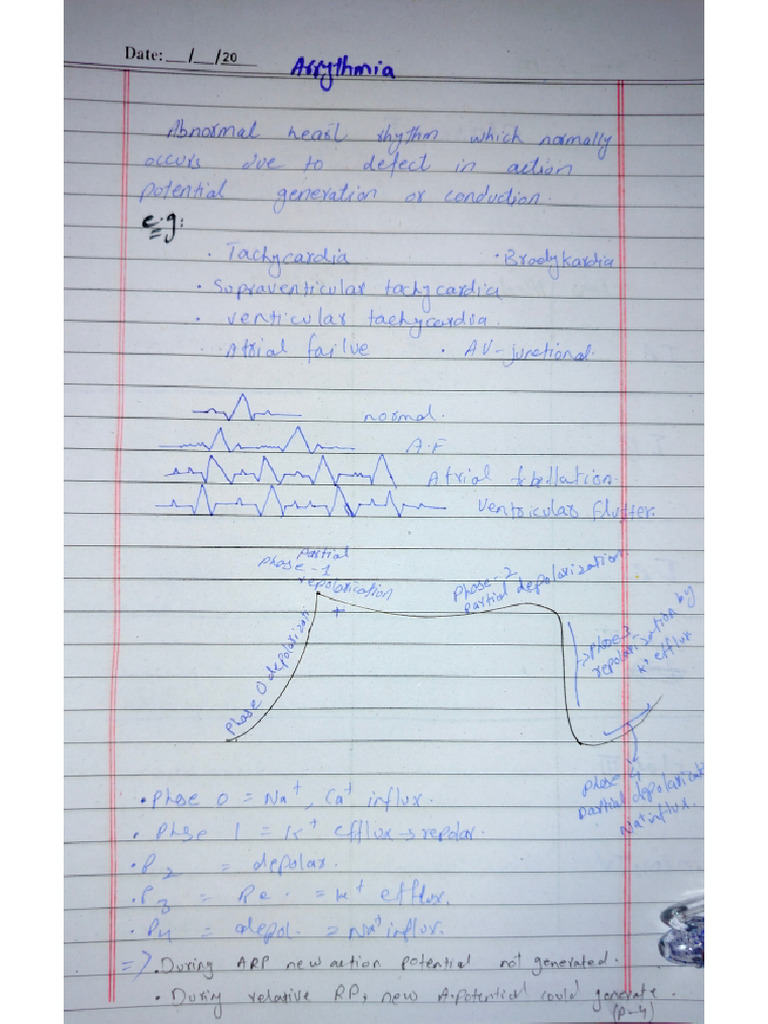 Date: __/__/20
Arrythmia
Abnormal heart rhythm which normally
occurs due to defect in action
potential generation or conduction.
e.g:
· Tachycardia · Bradykardia
· Supraventicular tachycardia
· venticular tachycardia.
Atrial failue · AV-junctional.
normal.
A.F
Atrial fibellation.
Ventricular flutter.
Partial
Phase-1
repolarization
+
Phase-2
partial depolarization
Phase 0 depolarizati
→ Phase 3
repolarization by
K+ efflux
Phase 4
Partial depolarizat
Na+ influx.
· Phase 0 = Na+, Ca+ influx.
· Phase 1 = K+ efflux → repolar.
· P2 = depolar.
· P3 = Re. = K+ efflux.
· P4 = depol. = Na+ influx.
=> · During ARP new action potential not generated.
· During relative RP, new A.potential could generate.
(P-4)